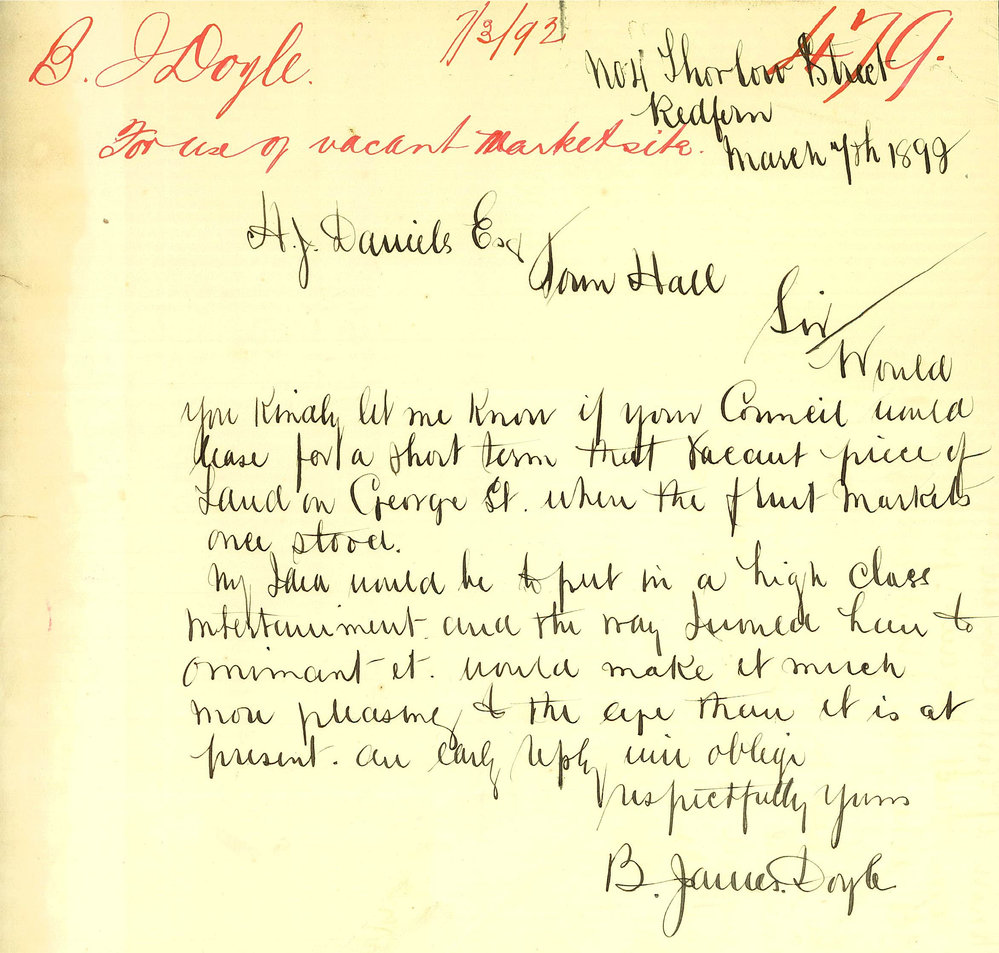 B. J Doyle.
7/3/92
479.
For use of vacant market site.
No 4 Thorlow Street
Redfern
March 7th 1892
H. J. Daniels Esq
Town Hall
Sir
Would
you Kindly let me Know if your Council would
lease for a short term that vacant piece of
Land on George St. when the fruit Markets
once stood.
My Idea would be to put in a high class
entertainment. and the way I would have to
ornimant it. would make it much
more pleasing to the eye than it is at
present. an early reply will oblige
respectfully yours
B. James. Doyle